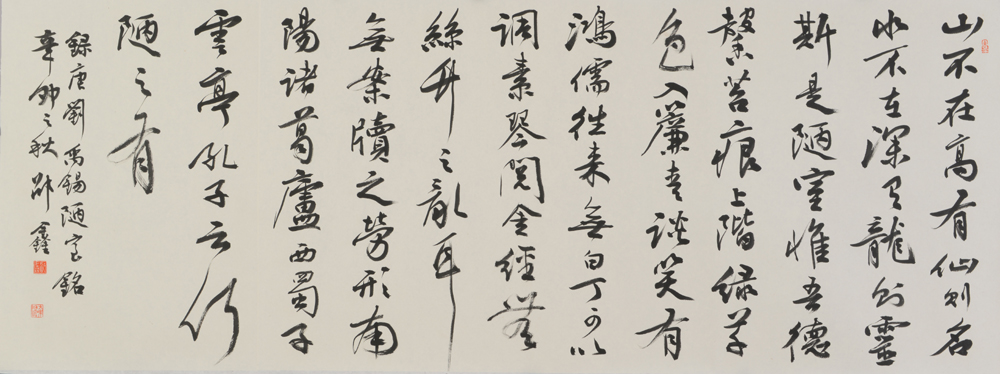 山不在高有仙则名
水不在深有龍则靈
斯是陋室惟吾德
馨苔痕上階緑草
色入簾青談笑有
鴻儒往来無白丁可以
調素琴閲金經無
絲竹之亂耳
無案牘之勞形南
陽諸葛廬西蜀子
雲亭孔子云何
陋之有
録唐劉禹錫陋室銘
辛卯之秋 鑫